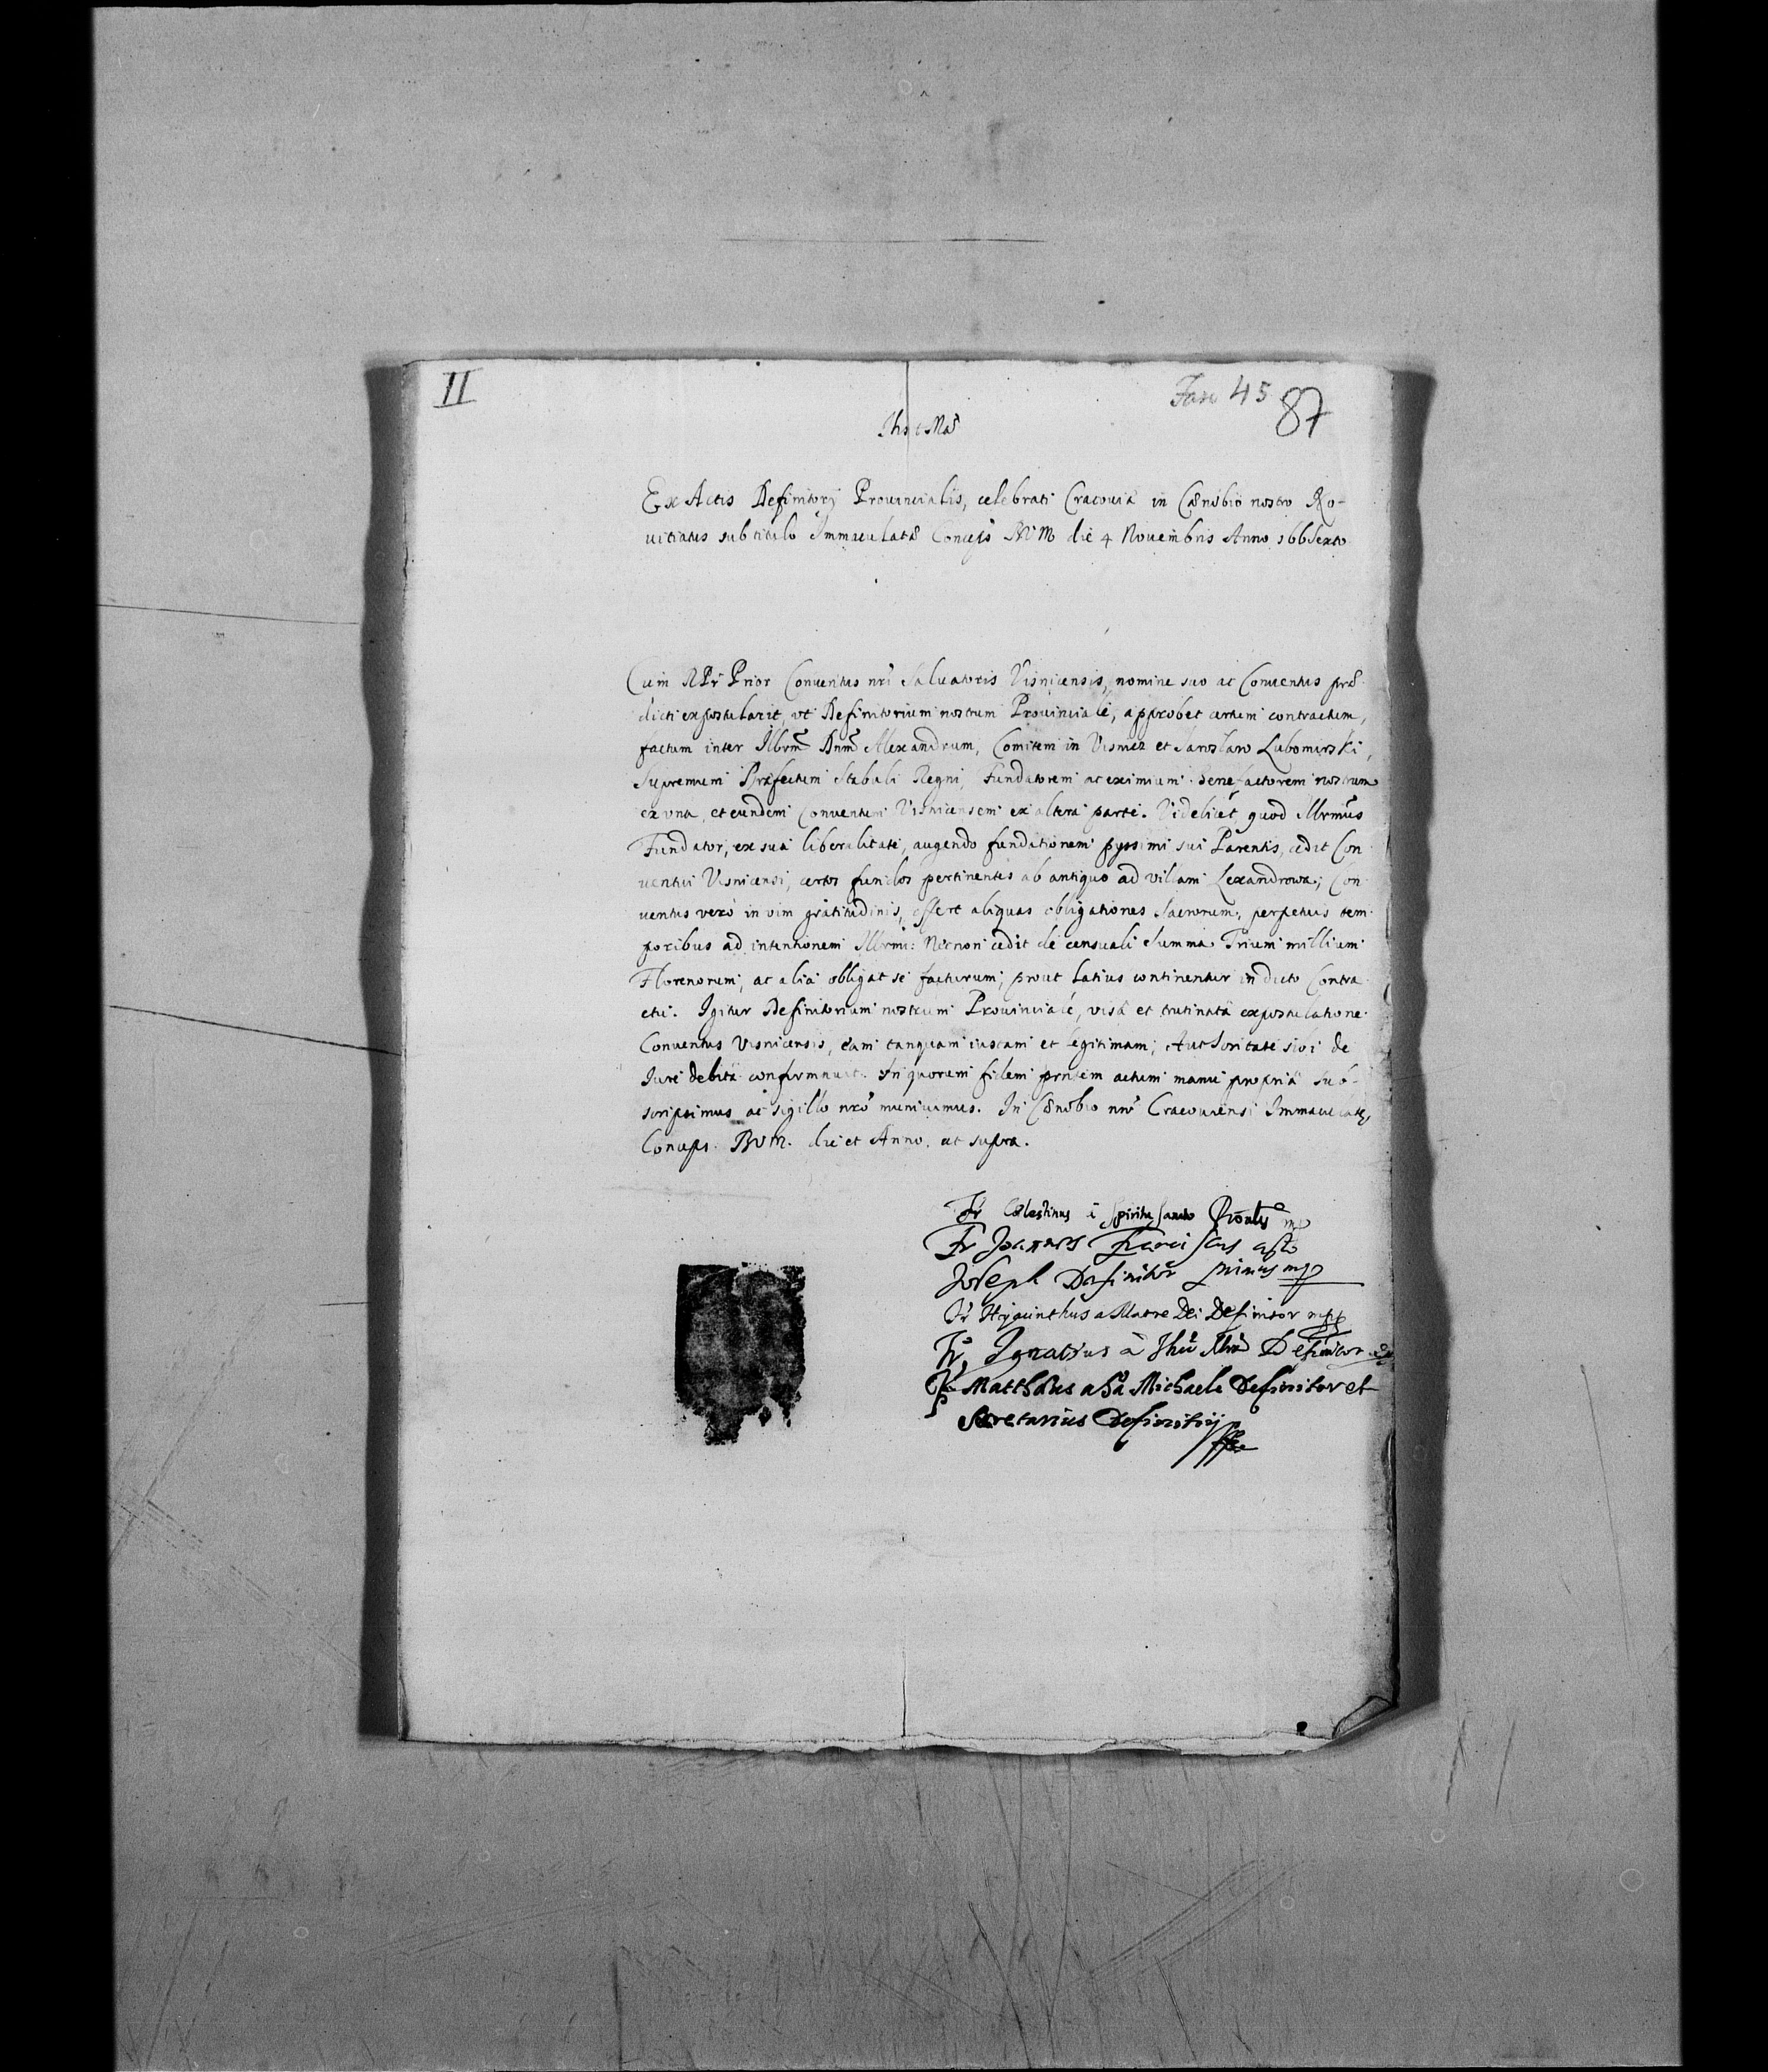 II
Fasc 45
87
Ihs t Ma͞r
Ex Actis Definitorij Prouincialis, celebrati Cracouiæ in Cœnobio nostro No-
uitiatus sub titulo Immaculatæ Concep̃s BVM die 4 Nouembris Anno 166Sexto
Cum RPr Prior Conuentus nr̃i Saluatoris Visnicensis, nomine suo ac Conuentus præ
dicti expostularit, vt Definitorium nostrum Prouinciale, approbet certum contractum,
factum inter Illrm̃ Dnm̃ Alexandrum, Comitem in Visnicz et Jaroslaw Lubomirski,
Supremum Præfectum Stabuli Regni, Fundatorem ac eximium Benefactorem nostrum
ex vna, et eundem Conuentum Visnicensem ex altera parte. Videlicet quod Illrmus
Fundator, ex sua liberalitate, augendo fundationem pyssimi sui Parentis, cedit Con
uentui Visnicensi, certos fundos pertinentes ab antiquo ad villam Lexandrowa; Con
uentus verò in vim gratitudinis, offert aliquas obligationes Sacrorum, perpetuis tem
poribus ad intentionem Illrmi: Necnon cedit de censuali Summa Trium millium
Florenorum, ac alia obligat se facturum, prout latius continentur in dicto Contra
ctu. Igitur Definitorium nostrum Prouinciale, visâ et trutinatâ expostulatione
Conuentus Visnicensis, eam tanquam iustam et legitimam, Authoritate sibi de
Iure debita confirmauit. In quorum fidem prñtem actum manu propriâ sub-
scripsimus ac sigillo nrõ muniuimus. In Cœnobio nrõ Cracouiensi Immaculatę
Conceps. BVM. die et Anno, ut supra.
Fr Cœlestinus à Spiritu Sancto Prou͞lis mp
Fr Joannes Franciscus a Sto
Joseph Definitor primus mp
Fr Hyacinthus a Matre Dei Definitor mpp
Fr, Ignatius à Jhũ Definitor
Fr Matthæus a S͞ Michaele Definitor et
Secretarius Definitorij